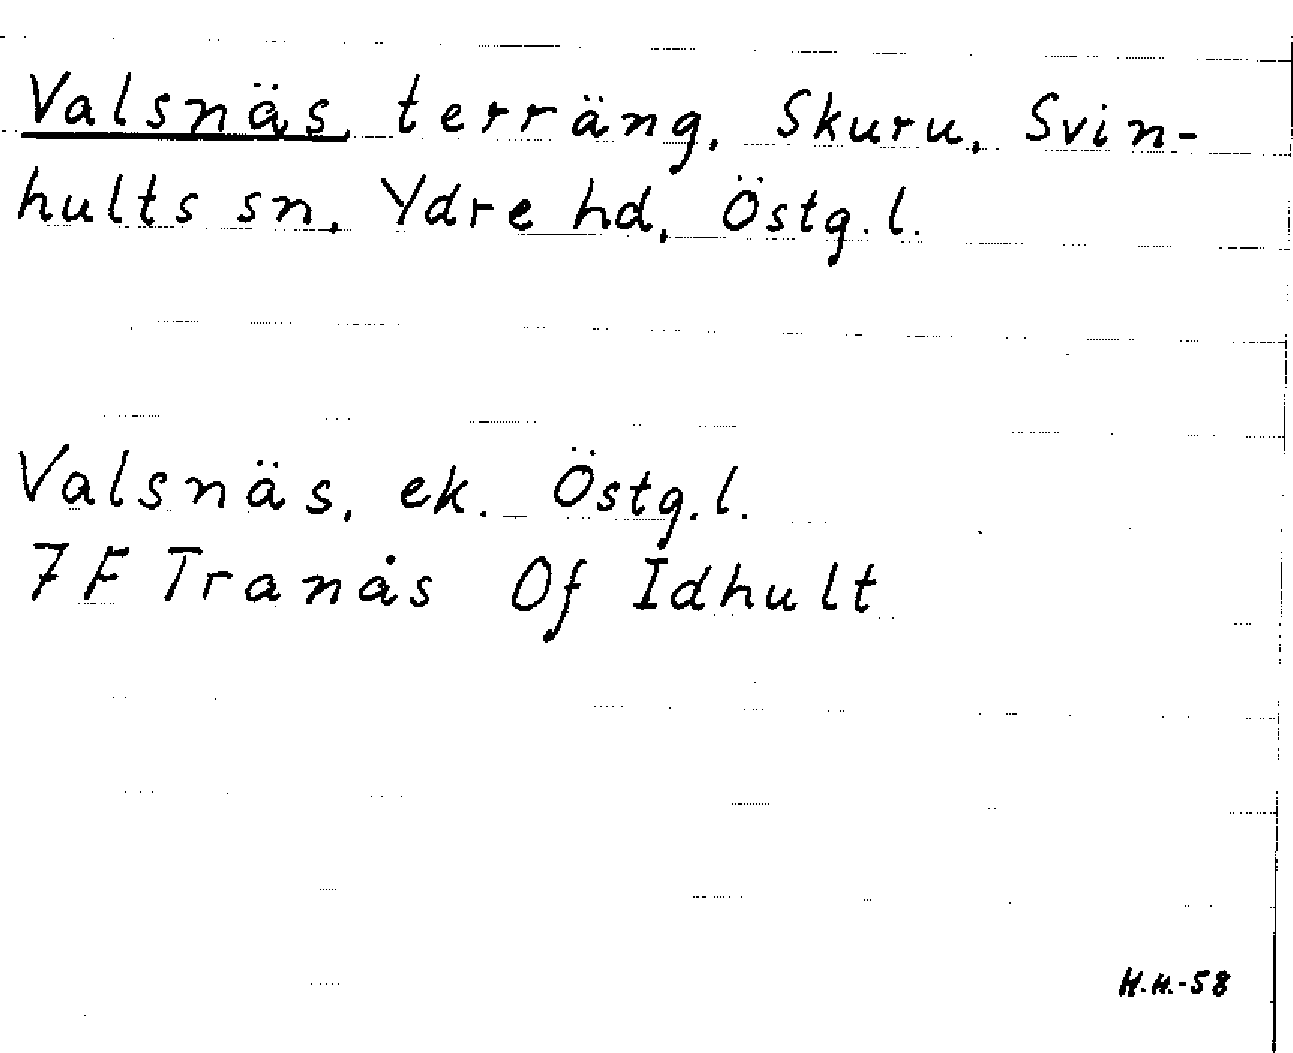 Valsnäs terräng, Skuru, Svin-
hults sn, Ydre hd, Östg.l.
Valsnäs, ek. Östg.l.
7F Tranås 0f Idhult
H.H.-58